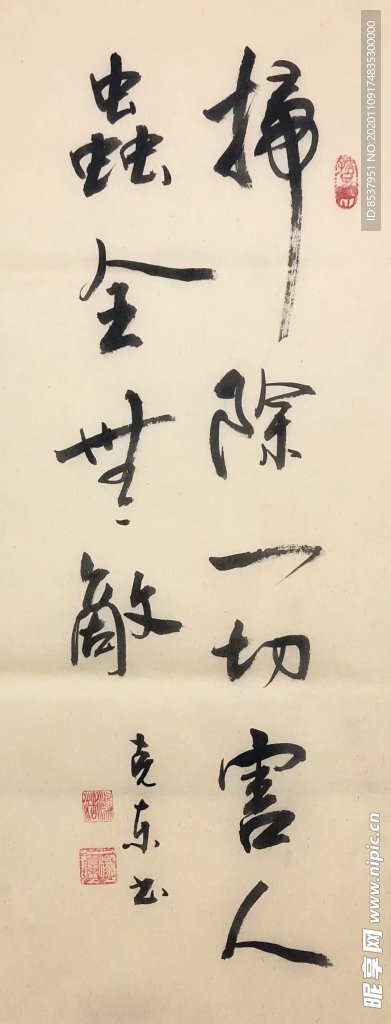 掃除一切害人
蟲全無敵
克东书
ID:8537951 NO:20201109174835300000
昵享网 www.nipic.cn